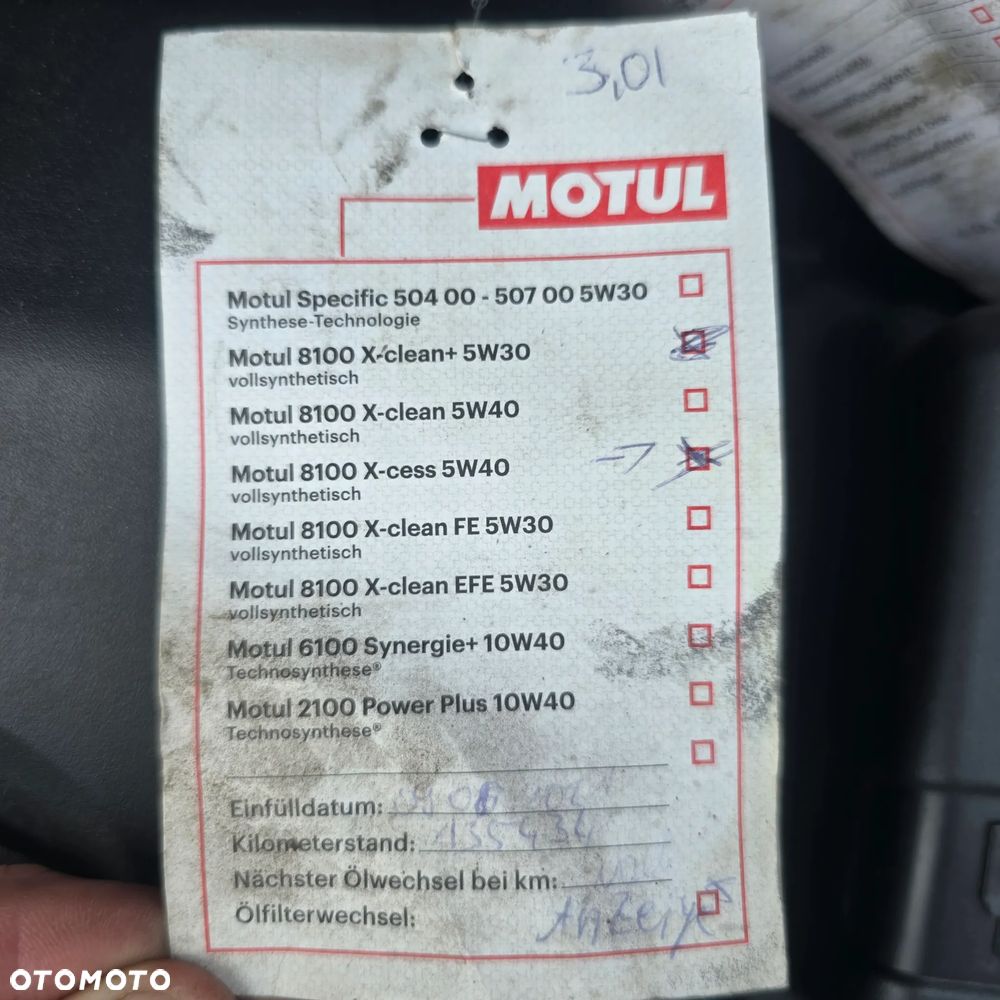 3,0l
MOTUL
Motul Specific 504 00 - 507 00 5W30
Synthese-Technologie
Motul 8100 X-clean+ 5W30
vollsynthetisch
Motul 8100 X-clean 5W40
vollsynthetisch
Motul 8100 X-cess 5W40
vollsynthetisch
Motul 8100 X-clean FE 5W30
vollsynthetisch
Motul 8100 X-clean EFE 5W30
vollsynthetisch
Motul 6100 Synergie+ 10W40
Technosynthese®
Motul 2100 Power Plus 10W40
Technosynthese®
Einfülldatum:
Kilometerstand: 135434
Nächster Ölwechsel bei km:
Ölfilterwechsel: Anzeige
OTOMOTO